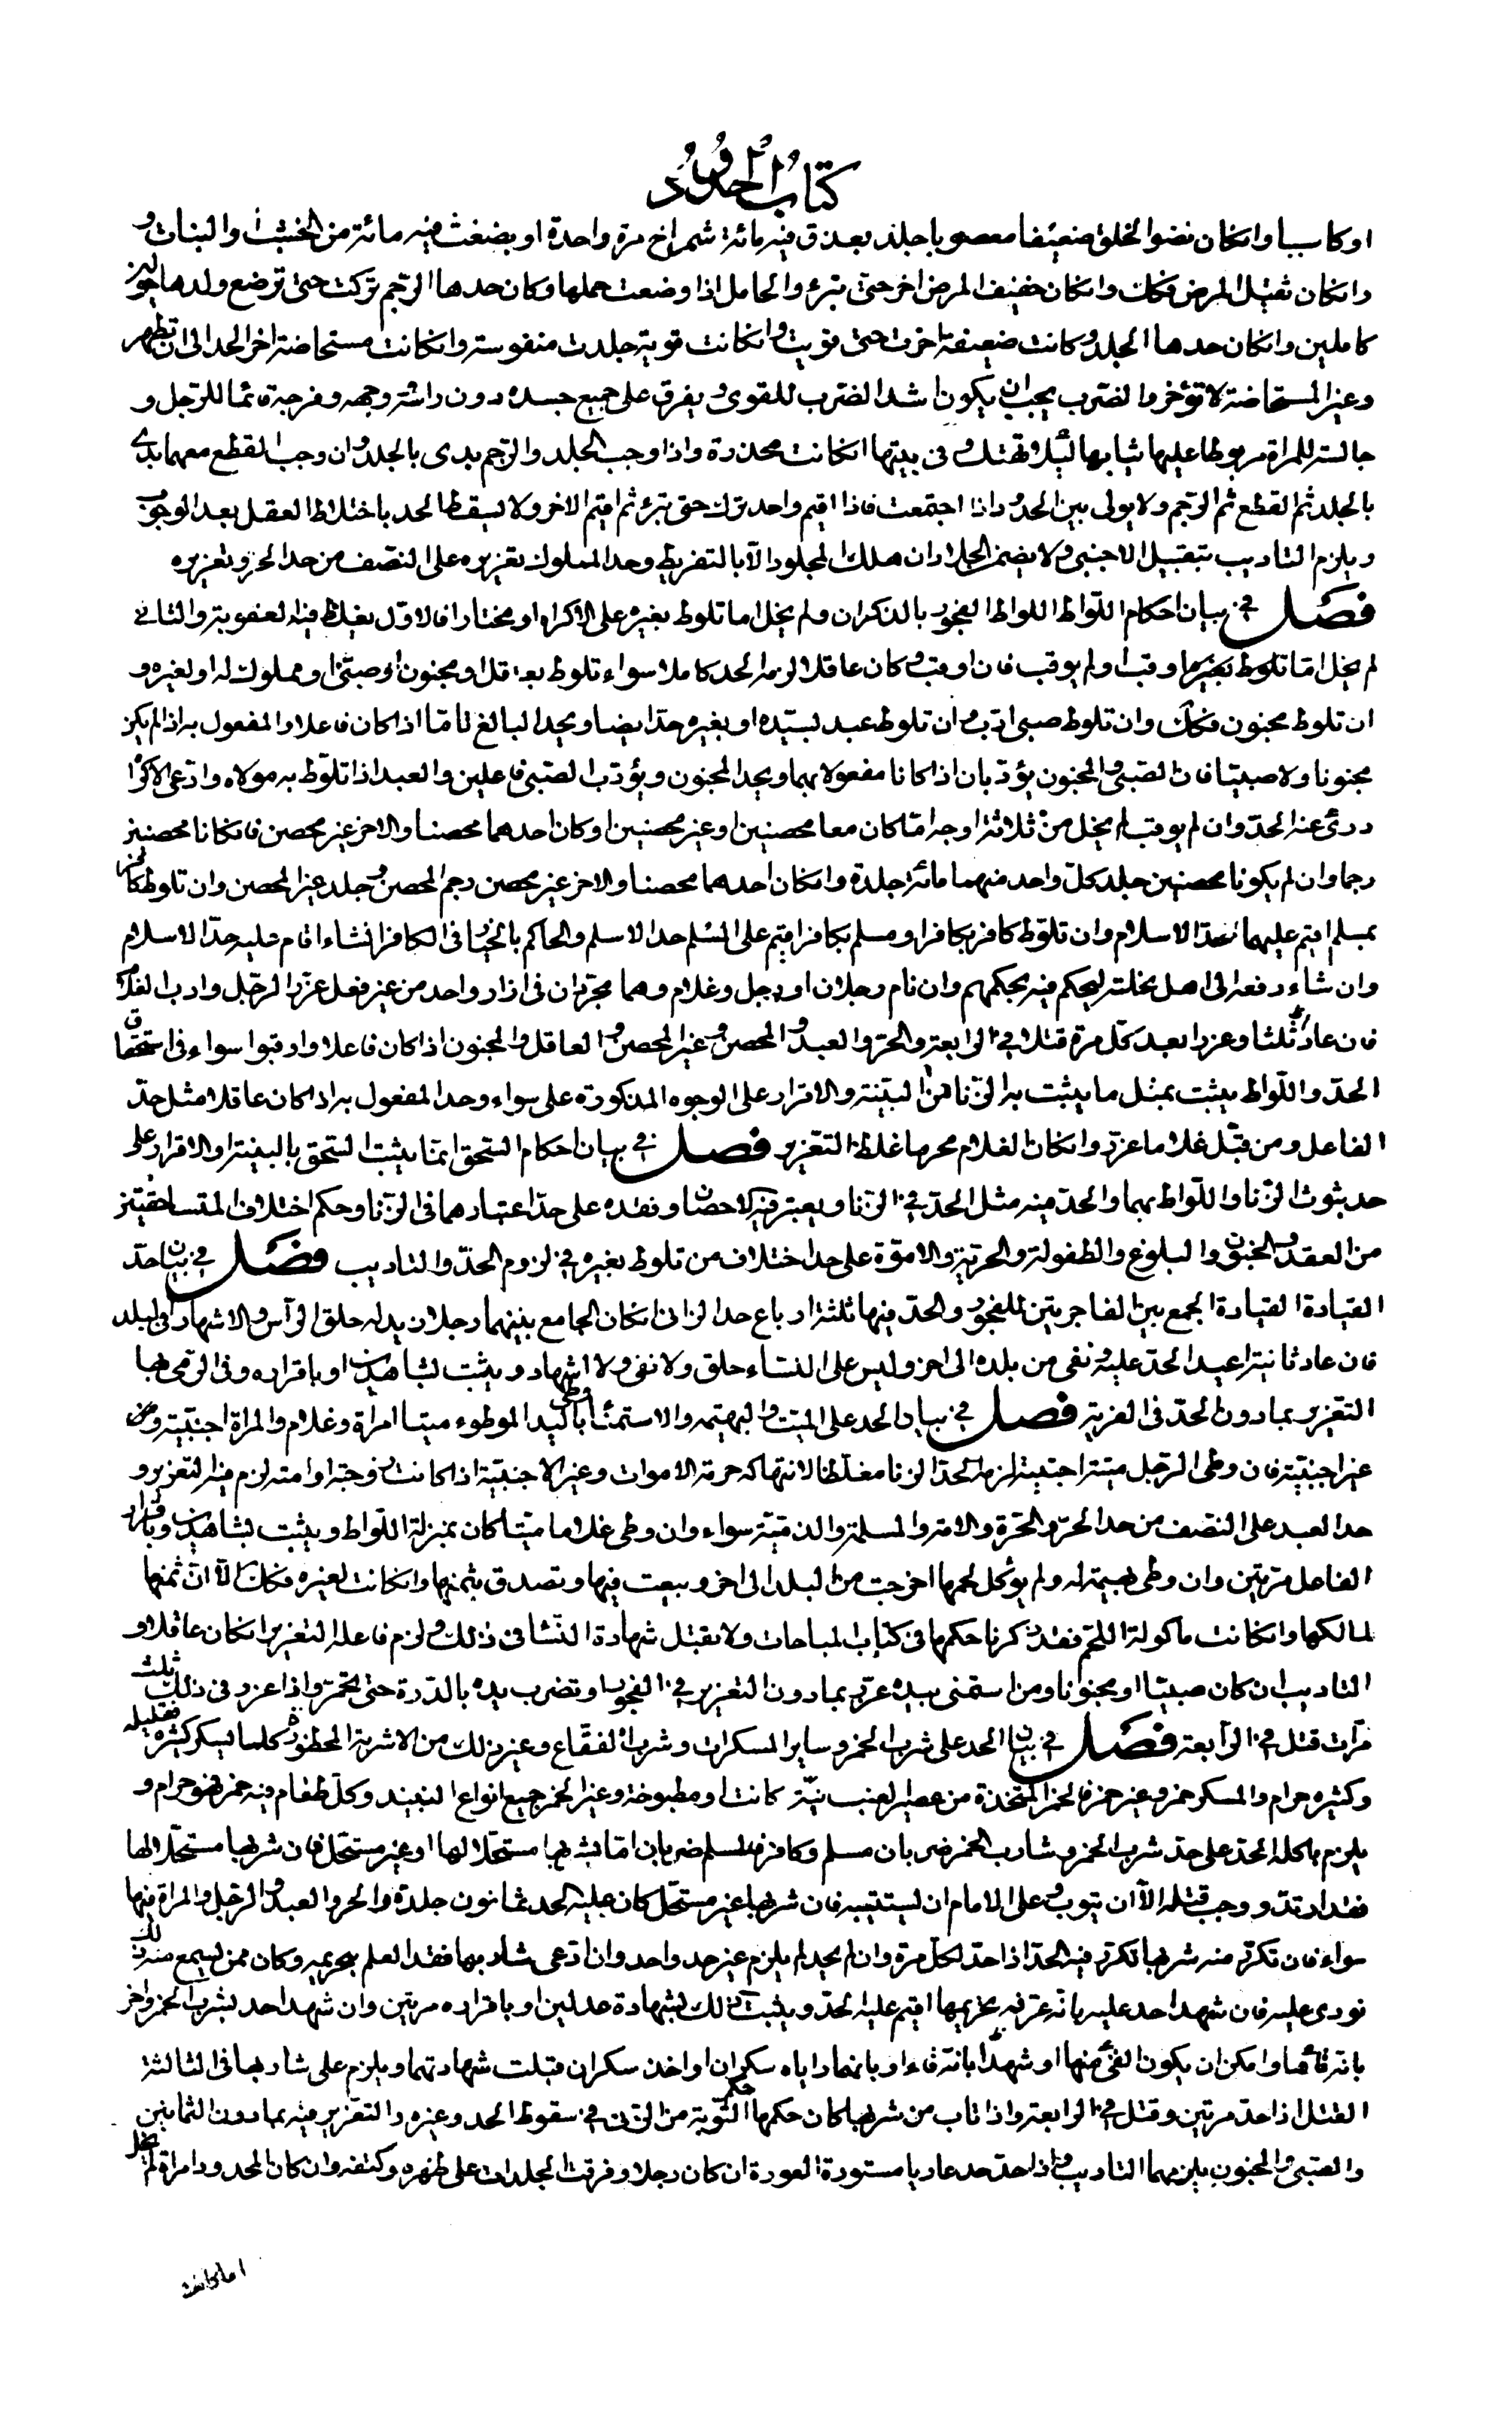 كتاب الحدود
او كاسيا وان كان نضو الخلق ضعيفا معصوبا جلد بعذق فيه مائة شمراخ مرة واحدة او بضغث فيه مائة من الخشب او النبات و
ان كان ثقيل المرض فكك وان كان خفيف المرض اخر حتى تبرء والحامل اذا وضعت حملها وكان حدها الرجم تركت حتى ترضع ولدها حولين
كاملين وان كان حدها الجلد وكانت ضعيفة اخرت حتى قويت وان كانت قوية جلدت منفوسة وان كانت مستحاضة اخر الحد الى ان تطهر
وغير المستحاضة لا تؤخر والضرب يجب ان يكون اشد الضرب للقوى ويفرق على جميع جسده دون راسه وجهه وفرجه قائما للرجل و
جالسة للمراة مربوطا عليها ثيابها لئلا تهتك وفى بيتها ان كانت مخدرة واذا وجب الجلد والرجم بدى بالجلد وان وجب القطع معهما بدى
بالجلد ثم القطع ثم الرجم ولا يولى بين الحدود اذا اجتمعت فاذا اقيم واحد ترك حتى تبرء ثم اقيم الاخر ولا يسقط الحد باختلاط العقل بعد الوجوب
ويلزم التاديب بتقبيل الاجنبى ولا يضمن الجلاد ان هلك المجلود الا بالتفريط وحد المملوك تعزيره على النصف من حد الحر وتعزيره
فصل فى بيان احكام اللواط اللواط الفجور بالذكران ولم يخل اما تلوط بغيره على الاكراه او مختارا فالاول يغلظ فيه العقوبة والثانى
لم يخل اما تلوط بغيره اوقب او لم يوقب فان اوقب وكان عاقلا لزمه الحد كاملا سواء تلوط بعاقل او مجنون او صبى او مملوك له او لغيره و
ان تلوط مجنون فكك وان تلوط صبى ادب وان تلوط عبد لسيده او بغيره حد ايضا ويحد البالغ تاما اذا كان فاعلا والمفعول به اذا لم يكن
مجنونا ولا صبيا فان الصبى والمجنون يؤدبان اذا كانا مفعولا بهما ويحد المجنون ويؤدب الصبى فاعلين والعبد اذا تلوط به مولاه وادعى الاكراه
درئ عنه الحد وان لم يوقب لم يخل من ثلاثة اوجه اما كان معا محصنين او غير محصنين او كان احدهما محصنا والاخر غير محصن فان كانا محصنين
رجما وان لم يكونا محصنين جلد كل واحد منهما مائة جلدة وان كان احدهما محصنا والاخر غير محصن رجم المحصن وجلد غير المحصن وان تلوط كافر
بمسلم اقيم عليهما حد الاسلام وان تلوط كافر بكافر او مسلم بكافر اقيم على المسلم حد الاسلم والحاكم بالخيار فى الكافر ان شاء اقام عليه حد الاسلام
وان شاء دفعه الى اهل نحلته ليحكم فيه بحكمهم وان نام رجلان او رجل وغلام وهما مجردان فى ازار واحد من غير فعل عزر الرجل وادب الغلام
فان عاد ثلثا وعزرا بعد كل مرة قتلا فى الرابعة والحر والعبد والمحصن وغير المحصن والعاقل والمجنون اذا كان فاعلا واوقبوا سواء فى استحقاق
الحد واللواط يثبت بمثل ما يثبت به الزنا من البينة والاقرار على الوجوه المذكورة على سواء وحد المفعول به اذا كان عاقلا مثل حد
الفاعل ومن قبل غلاما عزر وان كان الغلام محرما غلظ التعزير فصل فى بيان احكام السحق انما يثبت السحق بالبينة والاقرار على
حد ثبوت الزنا واللواط بهما والحد فيه مثل الحد فى الزنا ويعتبر فيه الاحصان وفقده على حد اعتبارهما فى الزنا وحكم اختلاف المتساحقتين
من العقد والجنون والبلوغ والطفولة والحرية والاموة على حد اختلاف من تلوط بغيره فى لزوم الحد والتاديب فصل فى بيان حد
القيادة القيادة الجمع بين الفاجرين للفجور والحد فيها ثلثة ارباع حد الزانى ان كان الجامع بينهما رجلان بدله حلق الراس والاشهار فى البلد
فان عاد ثانية اعيد الحد عليه ونفى من بلده الى اخر وليس على النساء حلق ولا نفى ولا اشهار ويثبت بشاهدين او باقراره وفى الرمى بها
التعزير بما دون الحد فى الفرية فصل فى بيان الحد على الميت والبهيمة والاستمناء باليد الموطوء ميتا امراة وغلام والمراة اجنبية ومن
غير اجنبية فان وطى الرجل ميتة اجنبية لزمه الحد الزنا مغلظا لانتهاكه حرمة الاموات وغير الاجنبية اذا كانت زوجته او امته لزم فيه التعزير و
حد العبد على النصف من حد الحر والحرة والامة والمسلمة والذمية سواء وان وطى غلاما ميتا كان بمنزلة اللواط ويثبت بشاهدين وباقرار
الفاعل مرتين وان وطى بهيمة له ولم يؤكل لحمها اخرجت من البلد الى اخر وبيعت فيها وتصدق بثمنها وان كانت لغيره فكك الا ان ثمنها
لمالكها وان كانت ماكولة اللحم فقد ذكرنا حكمها فى كتاب المباحات ولا تقبل شهادة النسا فى ذلك ولزم فاعله التعزير ان كان عاقلا و
التاديب ان كان صبيا او مجنونا ومن استمنى بيده عزر بما دون التعزير فى الفجور وتضرب يده بالدرة حتى تحمر واذا عزر فى ذلك ثلث
مرات قتل فى الرابعة فصل فى بيان الحد على شرب الخمر وساير المسكرات وشرب الفقاع وغير ذلك من الاشربة المحظورة كلما ليسكر كثيره فقليله
وكثيره حرام والمسكر خمر وغير خمر فالخمر المتخذة من عصير العنب نية كانت او مطبوخة وغير الخمر جميع انواع النبيذ وكل طعام فيه خمر فهو حرام و
يلزم باكله الحد على حد شرب الخمر وشارب الخمر ضربان مسلم وكافر فالمسلم ضربان اما يشربها مستحلا لها او غير مستحل فان شربها مستحلا لها
فقد ارتد ووجب قتله الا ان يتوب وعلى الامام ان يستتيبه فان شربها غير مستحل كان عليه الحد ثمانون جلدة والحر والعبد والرجل والمراة فيها
سواء فان تكرر منه شربها تكرر فيه الحد اذا حد لكل مرة وان لم يحد لم يلزم غير حد واحد وان ادعى شاربها فقد العلم بتحريمه وكان ممن ليسمع منه ذلك
نودى عليه فان شهد احد عليه بانه عرفه تحريمها اقيم عليه الحد ويثبت ذلك بشهادة عدلين او باقراره مرتين وان شهد احد بشرب الخمر واخر
بانه قاءها وامكن ان يكون القئ منها او شهدا بانه قاء او بانهما راياه سكران او اخذ سكران قبلت شهادتهما ويلزم على شاربها فى الثالثة
القتل اذا حد مرتين وقتل فى الرابعة واذا تاب من شربها كان حكمها حكم التوبة من الزنى فى سقوط الحد وغيره والتعزير فيه بما دون الثمانين
والصبى والمجنون يلزمهما التاديب واذا حد حد عاريا مستورة العورة ان كان رجلا وفرقت الجلدات على ظهره وكتفه وان كان المحدود امراة لم يخل
اما كانت